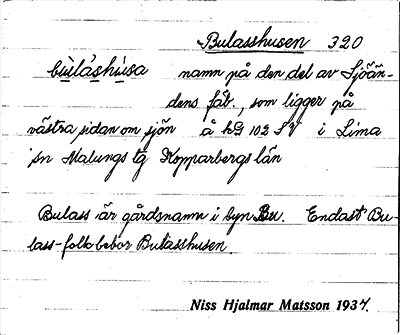 Bulasshusen 320
bùlàshùsa namn på den del av Sjöän-
dens fäb., som ligger på
västra sidan om sjön å hg 102 SV i Lima
sn Malungs tg Kopparbergs län
Bulass är gårdsnamn i byn Bu. Endast Bu-
lass-folk bebor Bulasshusen.
Niss Hjalmar Matsson 1937.